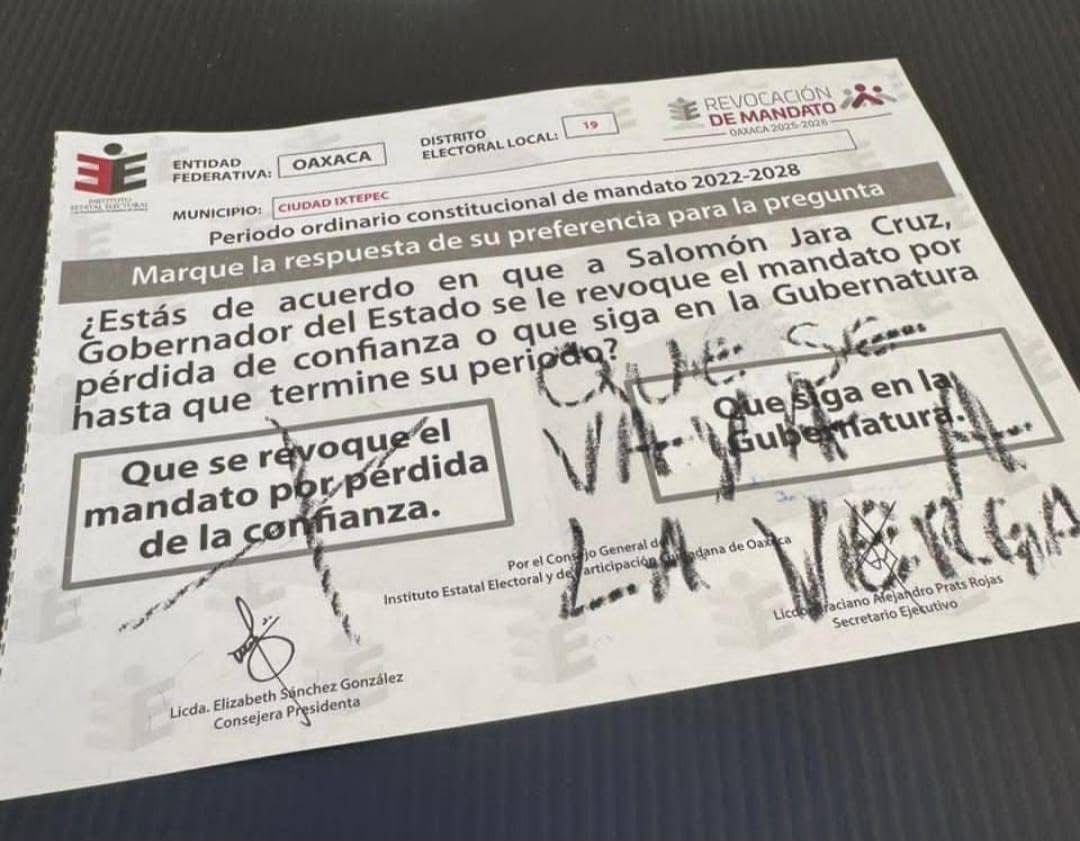 REVOCACIÓN
DE MANDATO
OAXACA 2025-2026
ENTIDAD
FEDERATIVA: OAXACA
DISTRITO
ELECTORAL LOCAL: 19
INSTITUTO
ESTATAL ELECTORAL
MUNICIPIO: CIUDAD IXTEPEC
Periodo ordinario constitucional de mandato 2022-2028
Marque la respuesta de su preferencia para la pregunta
¿Estás de acuerdo en que a Salomón Jara Cruz,
Gobernador del Estado se le revoque el mandato por
pérdida de confianza o que siga en la Gubernatura
hasta que termine su periodo?
Que se revoque el
mandato por pérdida
de la confianza.
Que siga en la
Gubernatura.
QUE SE
VAYA A
LA VERGA
Por el Consejo General del
Instituto Estatal Electoral y de Participación Ciudadana de Oaxaca
Licda. Elizabeth Sánchez González
Consejera Presidenta
Licdo. Graciano Alejandro Prats Rojas
Secretario Ejecutivo